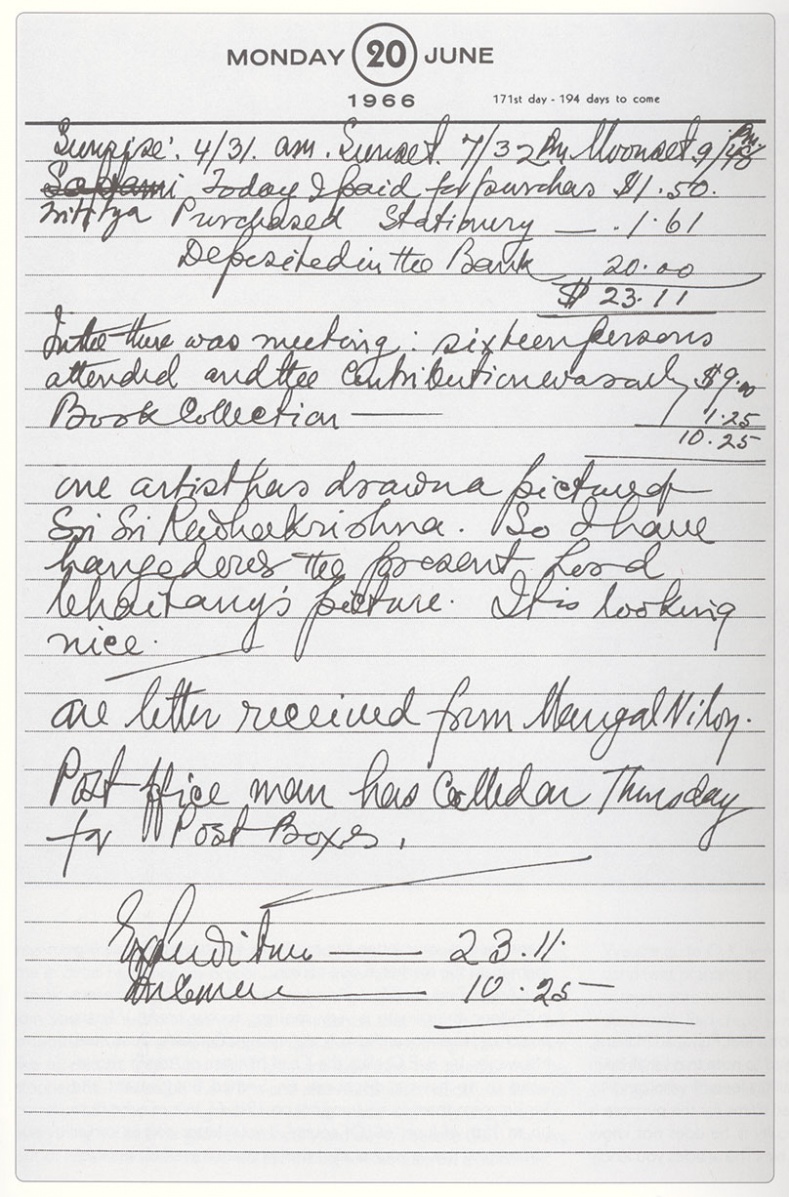 MONDAY 20 JUNE
1966 171st day - 194 days to come
Sunrise: 4/31. am. Sunset. 7/32 Pm. Moonset. 9/48 Pm
Today I paid for purchas $1.50.
Trititya Purchased Stationury — . 1.61
Deposited in the Bank 20.00
$ 23.11
In the there was meeting: sixteen persons
attended and the Contribution was only $9.00
Book Collection —— 1.25
10.25
one artist has drawn a picture of
Sri Sri Radha Krishna. So I have
hanged over the present Lord
Chaitanya's picture. It is looking
nice.
One letter received from Mangal Niloy.
Post office man has Called on Thursday
for Post Boxes.
Expenditure —— 23.11.
Income —— 10.25